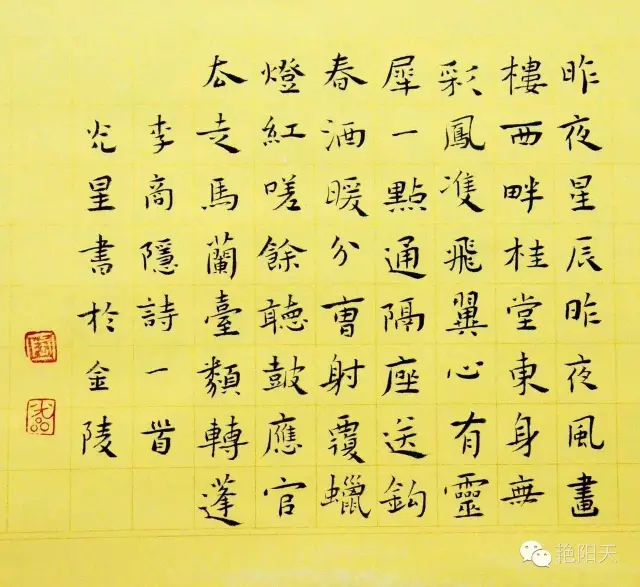 昨夜星辰昨夜風畫
樓西畔桂堂東身無
彩鳳雙飛翼心有靈
犀一點通隔座送鈎
春酒暖分曹射覆蠟
燈紅嗟餘聽鼓應官
去走馬蘭臺類轉蓬
李商隱詩一首
光星書於金陵
艳阳天